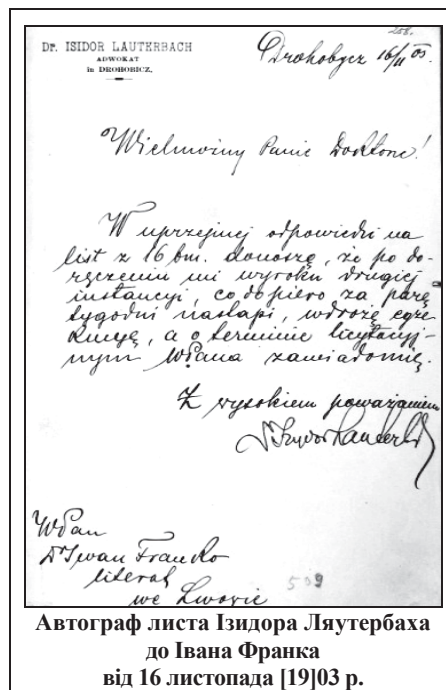 258.
Dr. ISIDOR LAUTERBACH
ADWOKAT
in DROHOBICZ.
Drohobycz 16/11 03
Wielmożny Panie Doktorze!
W uprzejmej odpowiedzi na
list z 16 bm. donoszę, że po do-
ręczeniu mi wyroku drugiej
instancyi, co dopiero za parę
tygodni nastąpi, wdrożę egze
kucyę, a o terminie licytacyj-
nym WPana zawiadomię.
Z wysokiem poważaniem
WPan
Dr Iwan Franko
literat
we Lwowie
509
Автограф листа Ізидора Ляутербаха
до Івана Франка
від 16 листопада [19]03 р.